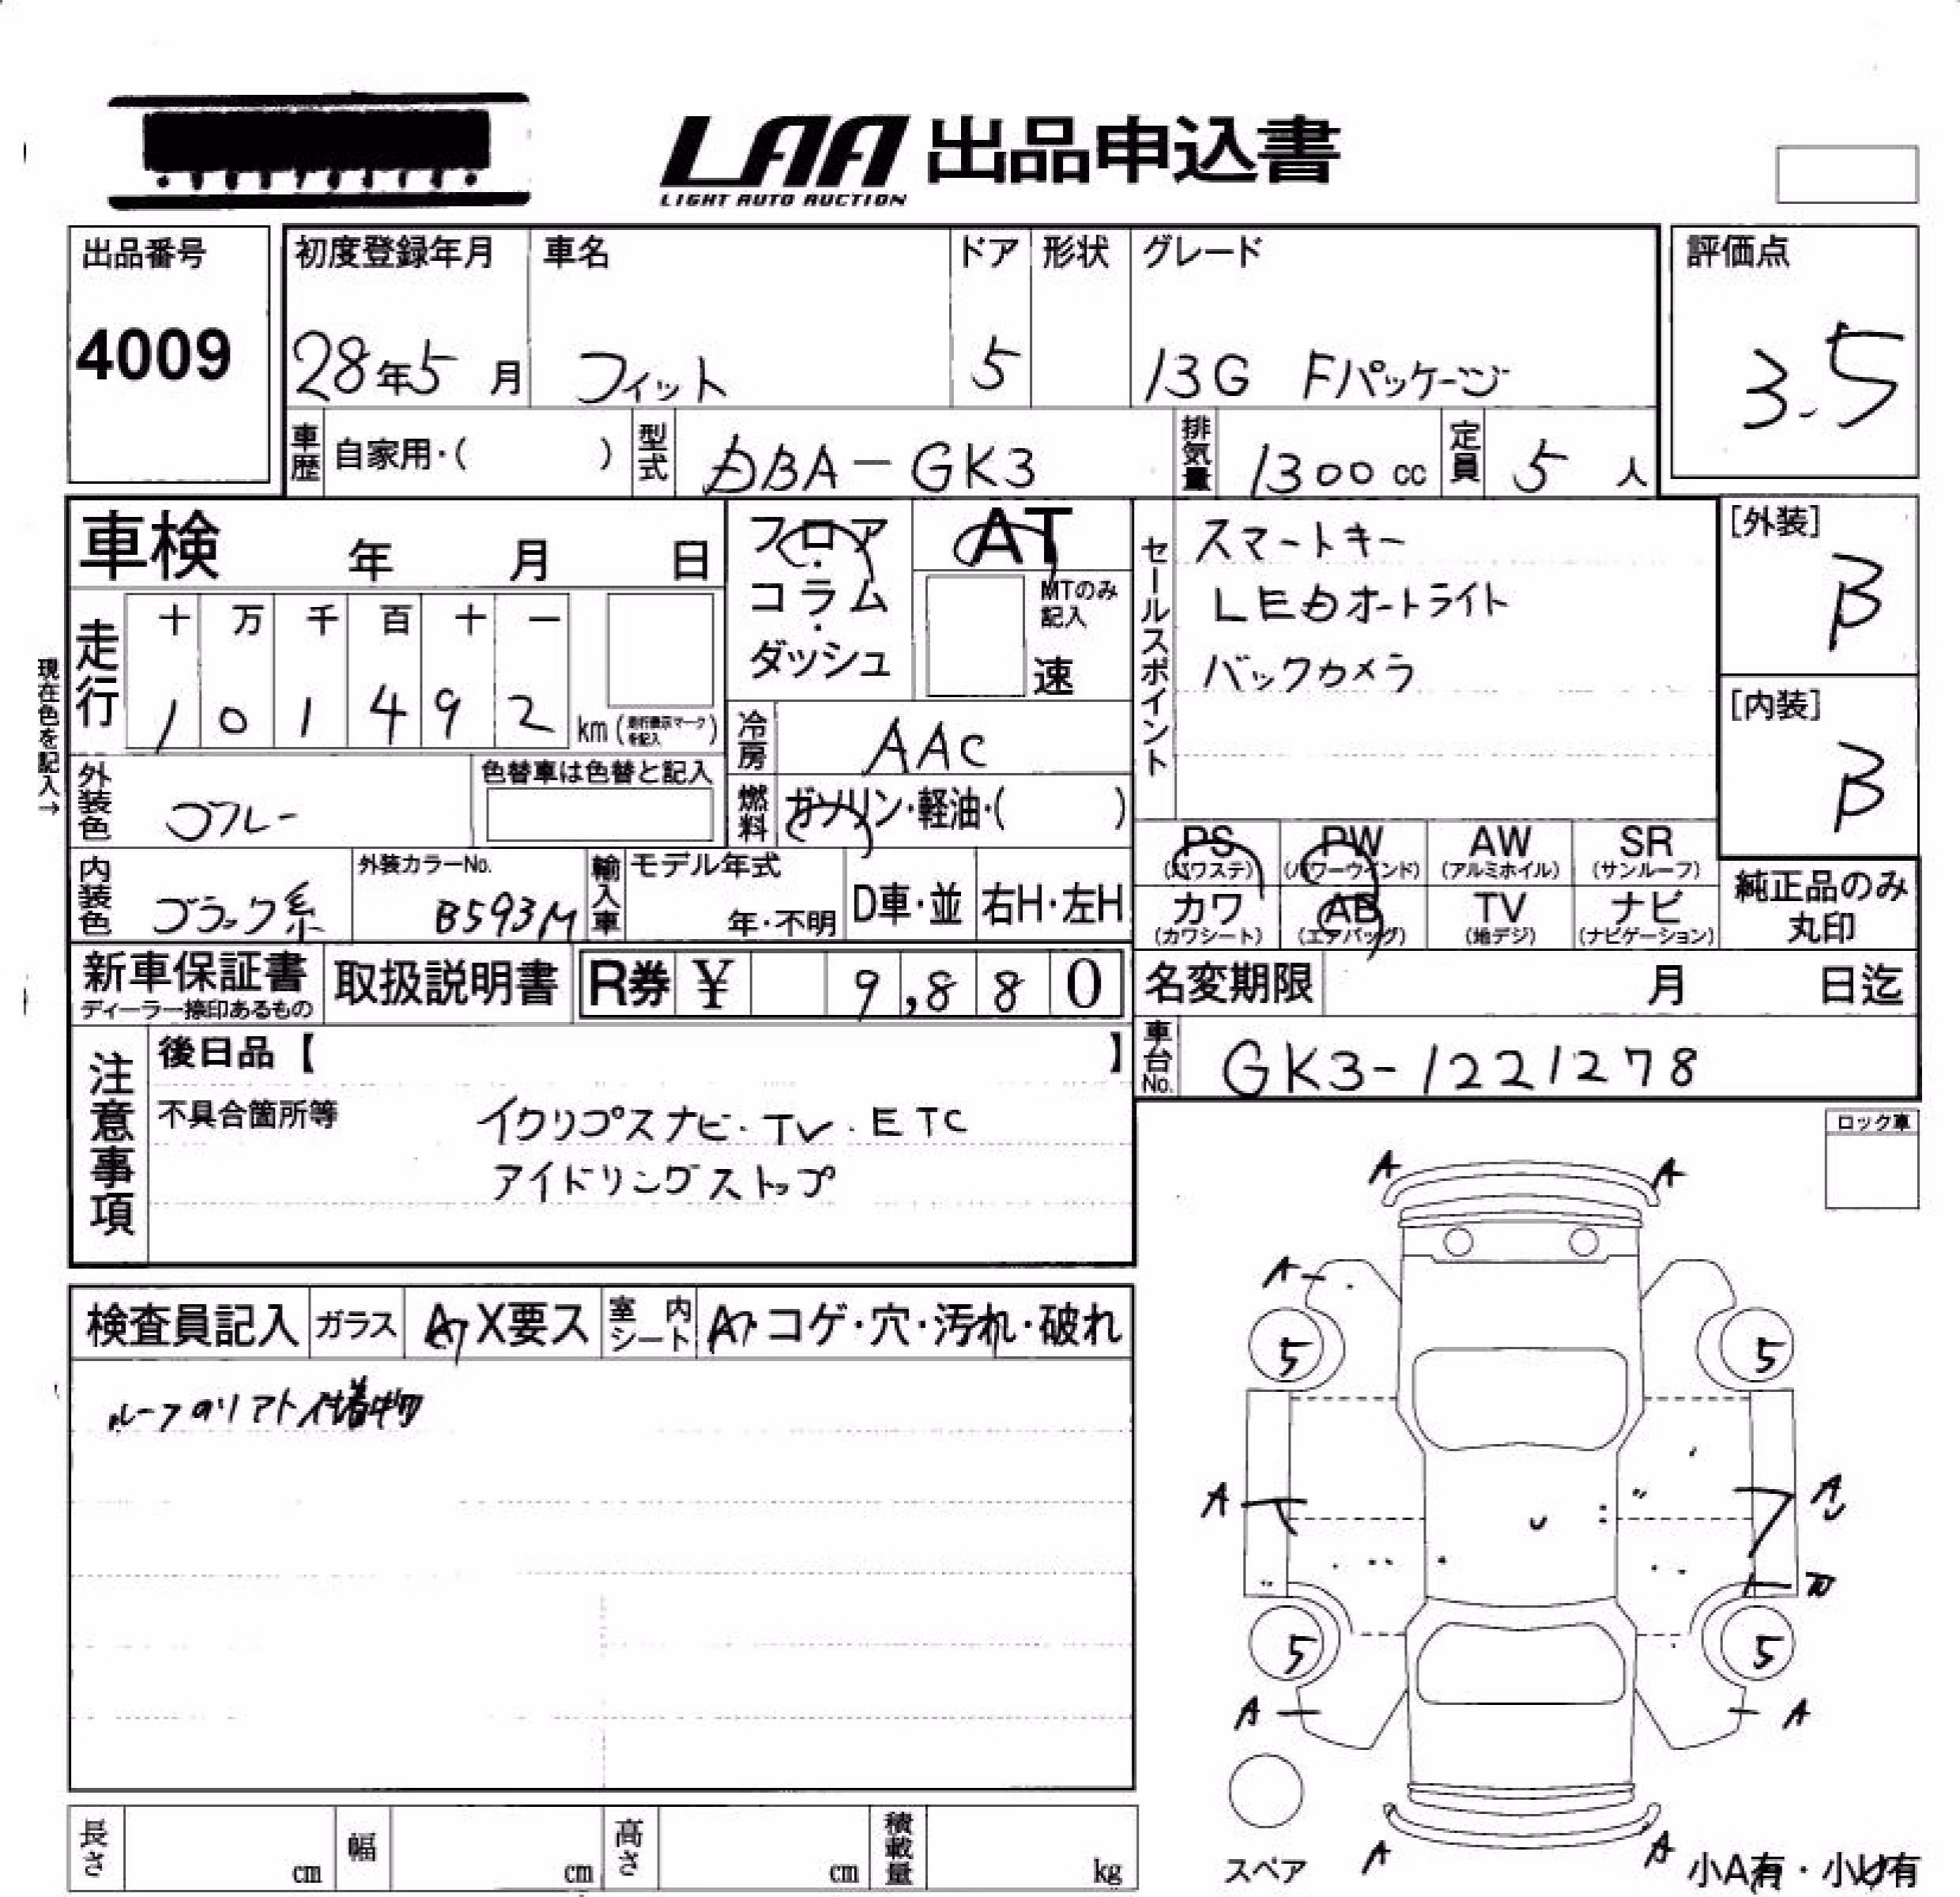 LAA 出品申込書
LIGHT AUTO AUCTION
出品番号
4009
初度登録年月
28年5月
車名
フィット
ドア
5
形状
グレード
13G Fパッケージ
評価点
3.5
車歴
自家用・( )
型式
DBA-GK3
排気量
1300 cc
定員
5 人
車検 年 月 日
フロア・コラム・ダッシュ
AT
MTのみ記入
速
セールスポイント
スマートキー
LEDオートライト
バックカメラ
[外装]
B
[内装]
B
現在色を記入→
走行
十 万 千 百 十 一
1 0 1 4 9 2
km (走行表示マークを記入)
冷房
AAC
外装色
ブルー
色替車は色替と記入
燃料
ガソリン・軽油・( )
PS (パワステ)
PW (パワーウインド)
AW (アルミホイル)
SR (サンルーフ)
カワ (カワシート)
AB (エアバッグ)
TV (地デジ)
ナビ (ナビゲーション)
純正品のみ丸印
内装色
ブラック系
外装カラーNo.
B593M
輸入車
モデル年式
年・不明
D車・並
右H・左H
新車保証書
ディーラー捺印あるもの
取扱説明書
R券 ¥ 9,880
名変期限 月 日迄
車台No.
GK3-1221278
注意事項
後日品【 】
不具合箇所等
イクリプスナビ・TV・ETC
アイドリングストップ
ロック車
検査員記入
ガラス
A・X要ス
室内シート
A・コゲ・穴・汚れ・破れ
A A
A
5 5
A A
5 5
A A
A A
スペア
小A有・小U有
長さ cm
幅 cm
高さ cm
積載量 kg